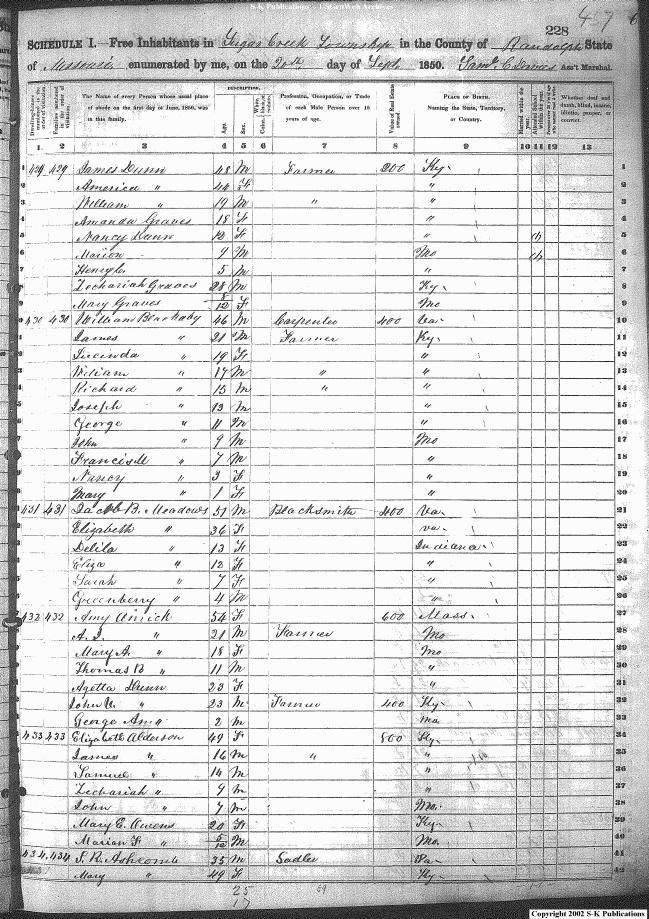 S-K Publications - USGenWeb Archives
457 6
228
SCHEDULE I.—Free Inhabitants in Sugar Creek Township in the County of Randolph State
of Missouri enumerated by me, on the 20th day of Sept 1850. Saml. C. Davis Ass't Marshal.
Dwelling-houses numbered in the order of visitation. Families numbered in the order of visitation. The Name of every Person whose usual place of abode on the first day of June, 1850, was in this family. DESCRIPTION. Age. Sex. Color. Profession, Occupation, or Trade of each Male Person over 15 years of age. Value of Real Estate owned. PLACE OF BIRTH. Naming the State, Territory, or Country. Married within the year. Attended School within the year. Whether deaf and dumb, blind, insane, idiotic, pauper, or convict.
1 2 3 4 5 6 7 8 9 10 11 12 13
1 429 429 James Dunn 48 M Farmer 200 Ky. 1
2 America " 44 F " 2
3 William " 19 M " " 3
4 Amanda Graves 18 F " 4
5 Nancy Dunn 12 F " 1 5
6 Marion " 9 M Mo 1 6
7 Henry C. 5 M " 7
8 Zechariah Graves 28 M Ky. 8
9 Mary Graves 8/12 F Mo 9
10 430 430 William Blackaby 46 M Carpenter 400 Va. 10
11 James " 21 M Farmer Ky. 11
12 Lucinda " 19 F " 12
13 William " 17 M " " 13
14 Richard " 15 M " " 14
15 Joseph " 13 M " 15
16 George " 11 M " 16
17 John " 9 M Mo 17
18 Francis M " 7 M " 18
19 Nancy " 3 F " 19
20 Mary " 1 F " 20
21 431 431 Jacob B. Meadows 51 M Blacksmith 400 Va. 21
22 Elizabeth " 36 F Va. 22
23 Delila " 13 F Indiana 23
24 Eliza " 12 F " 24
25 Sarah " 7 F " 25
26 Greenberry " 4 M " 26
27 432 432 Amy Amick 54 F 600 Mass. 27
28 A. J. " 21 M Farmer Mo 28
29 Mary A. " 18 F Mo 29
30 Thomas B " 11 M " 30
31 Agetta Dunn 23 F " 31
32 John " 23 M Farmer 400 Ky. 32
33 George Am " 2 M Mo. 33
34 433 433 Elizabeth Alderson 49 F 800 Ky. 34
35 James " 16 M " " 35
36 Samuel " 14 M " 36
37 Zechariah " 9 M " 37
38 John " 7 M Mo. 38
39 Mary E. Owens 20 F Ky. 39
40 Marian F " 5/12 M Mo. 40
41 434 434 S. R. Ashcomb 35 M Sadler Pa. 41
42 Mary " 49 F Ky. 42
25
17
Copyright 2002 S-K Publications